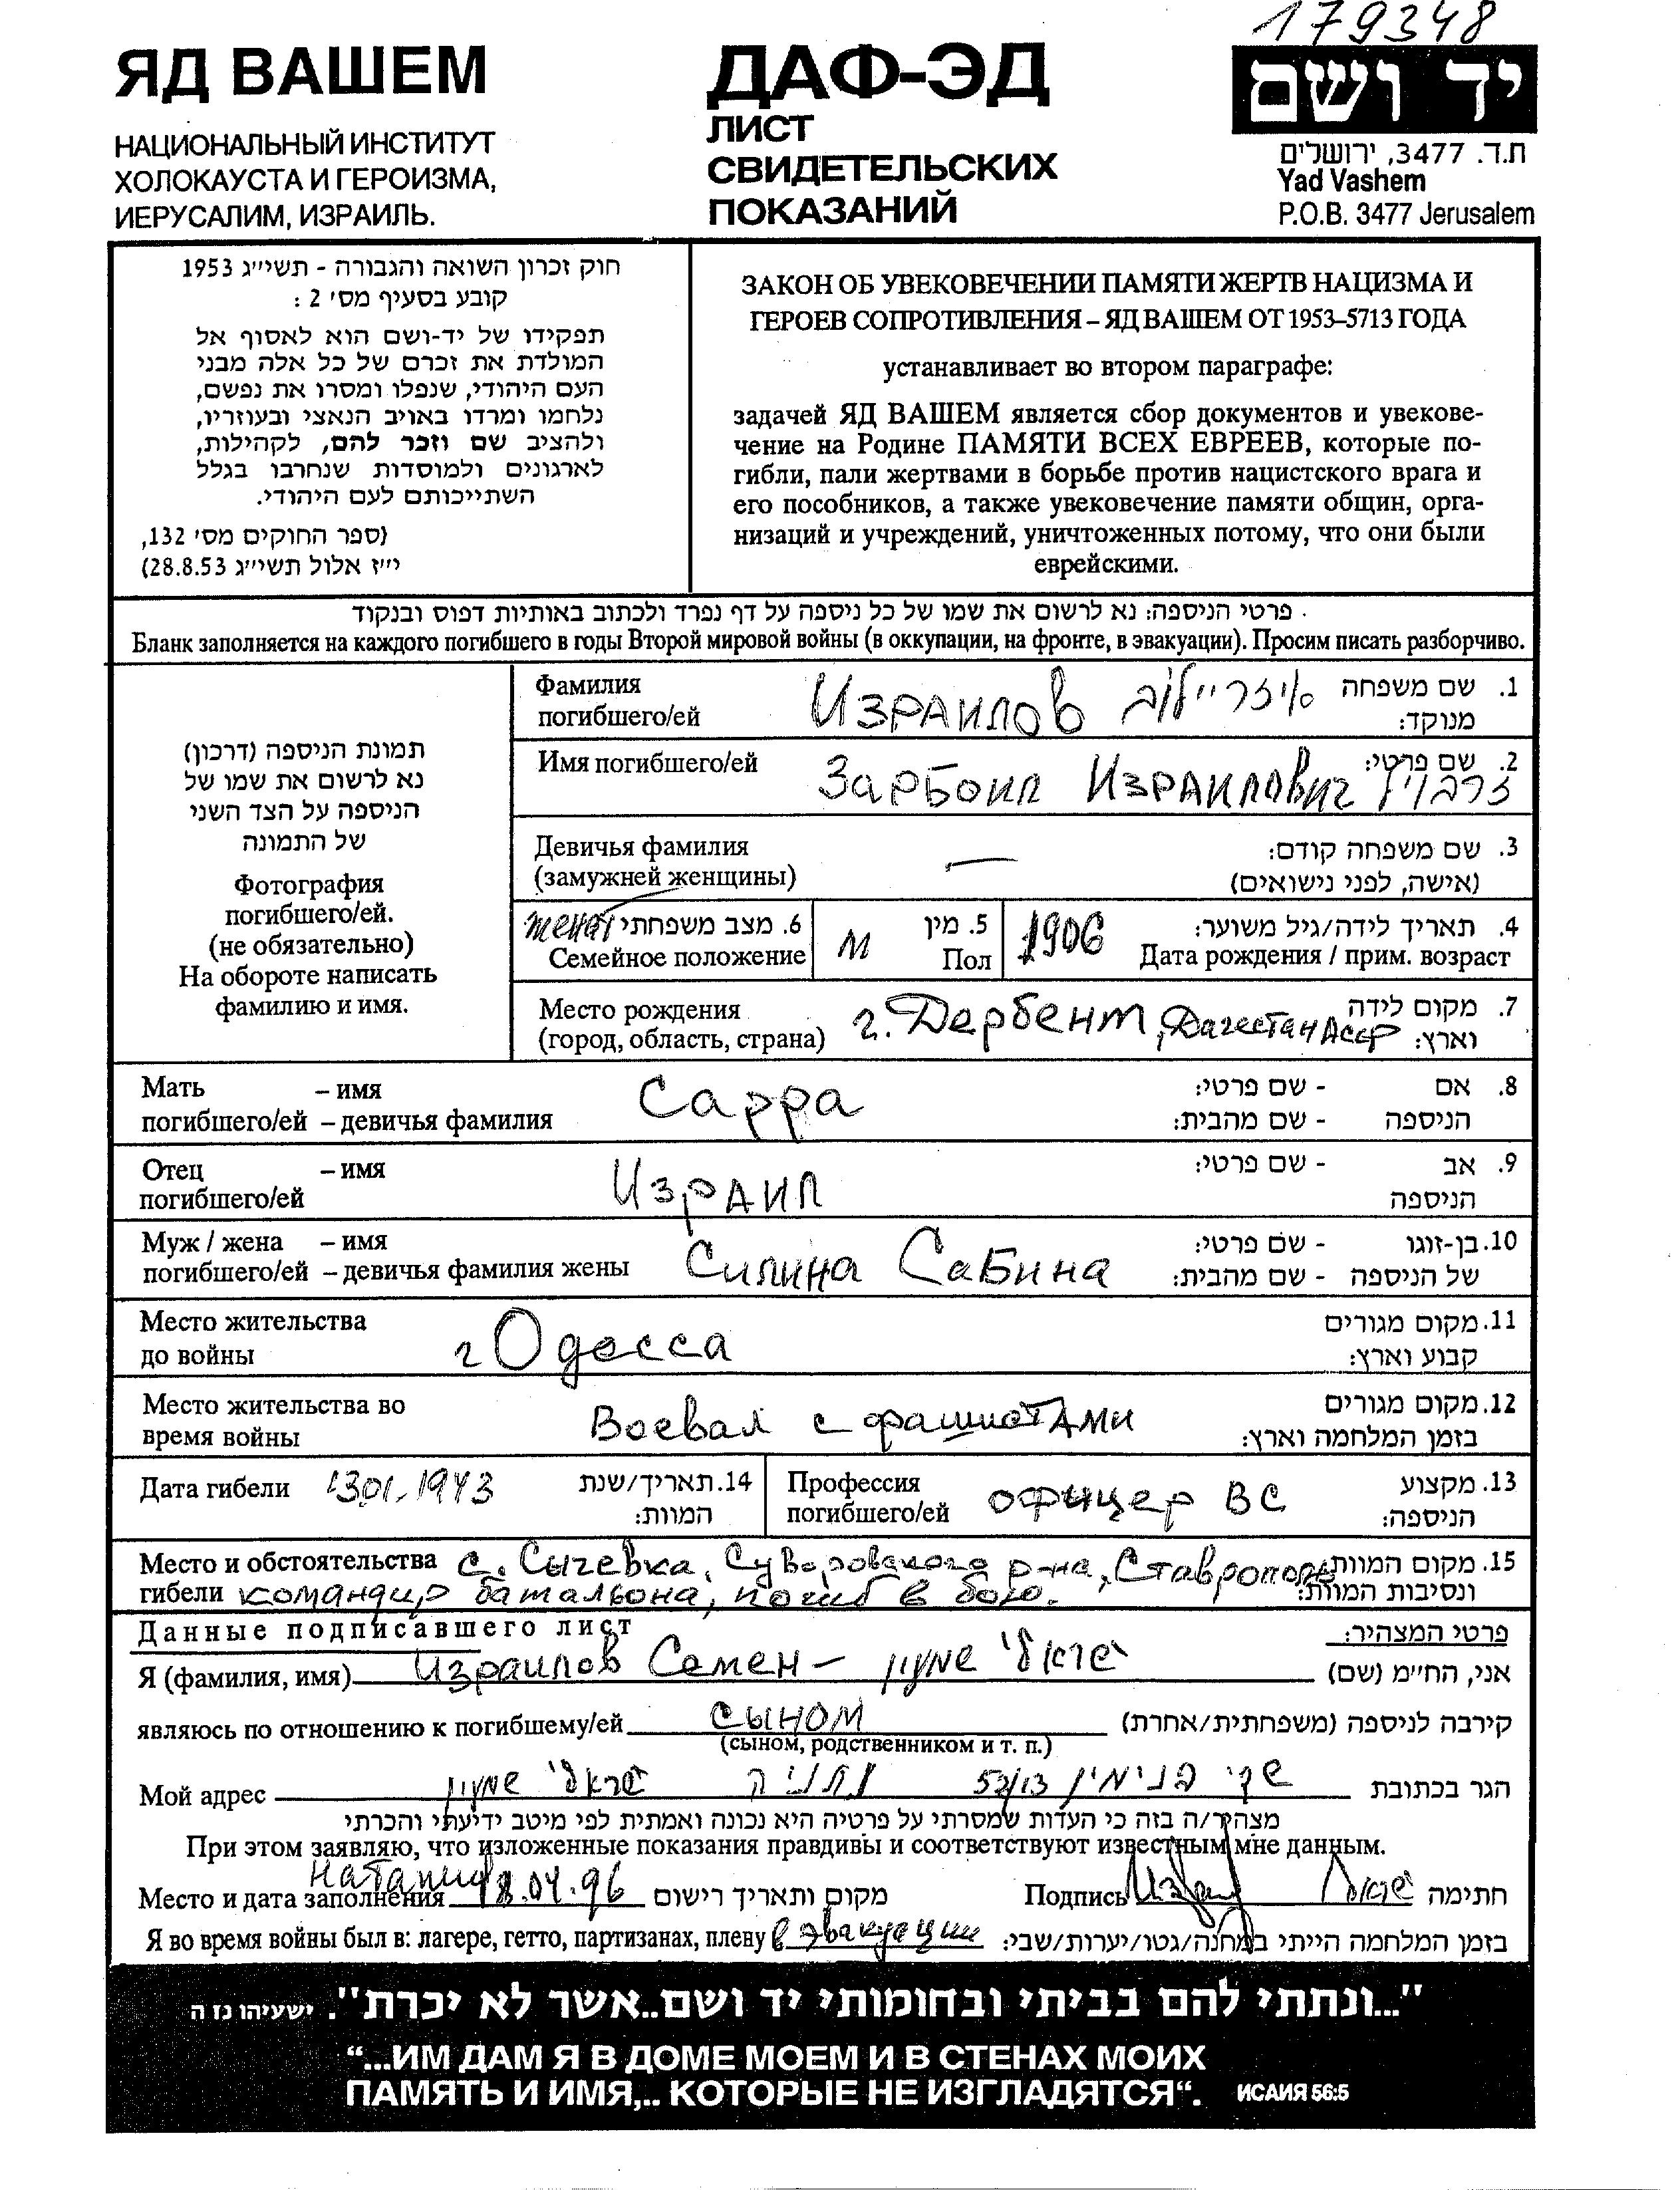 179348
ЯД ВАШЕМ
НАЦИОНАЛЬНЫЙ ИНСТИТУТ
ХОЛОКАУСТА И ГЕРОИЗМА,
ИЕРУСАЛИМ, ИЗРАИЛЬ.
ДАФ-ЭД
ЛИСТ
СВИДЕТЕЛЬСКИХ
ПОКАЗАНИЙ
יד ושם
ת.ד. 3477, ירושלים
Yad Vashem
P.O.B. 3477 Jerusalem
חוק זכרון השואה והגבורה - תשי״ג 1953
קובע בסעיף מס׳ 2 :
תפקידו של יד-ושם הוא לאסוף אל
המולדת את זכרם של כל אלה מבני
העם היהודי, שנפלו ומסרו את נפשם,
נלחמו ומרדו באויב הנאצי ובעוזריו,
ולהציב שם וזכר להם, לקהילות,
לארגונים ולמוסדות שנחרבו בגלל
השתייכותם לעם היהודי.
(ספר החוקים מס׳ 132,
י״ז אלול תשי״ג 28.8.53)
ЗАКОН ОБ УВЕКОВЕЧЕНИИ ПАМЯТИ ЖЕРТВ НАЦИЗМА И
ГЕРОЕВ СОПРОТИВЛЕНИЯ – ЯД ВАШЕМ ОТ 1953–5713 ГОДА
устанавливает во втором параграфе:
задачей ЯД ВАШЕМ является сбор документов и увекове-
чение на Родине ПАМЯТИ ВСЕХ ЕВРЕЕВ, которые по-
гибли, пали жертвами в борьбе против нацистского врага и
его пособников, а также увековечение памяти общин, орга-
низаций и учреждений, уничтоженных потому, что они были
еврейскими.
פרטי הניספה: נא לרשום את שמו של כל ניספה על דף נפרד ולכתוב באותיות דפוס ובנקוד
Бланк заполняется на каждого погибшего в годы Второй мировой войны (в оккупации, на фронте, в эвакуации). Просим писать разборчиво.
תמונת הניספה (דרכון)
נא לרשום את שמו של
הניספה על הצד השני
של התמונה
Фотография
погибшего/ей.
(не обязательно)
На обороте написать
фамилию и имя.
Фамилия
погибшего/ей ИЗРАИЛОВ איזריילוב
1. שם משפחה
מנוקד:
Имя погибшего/ей ЗАРБОИЛ ИЗРАИЛОВИЧ זרבויל
2. שם פרטי:
Девичья фамилия
(замужней женщины) —
3. שם משפחה קודם:
(אישה, לפני נישואים)
женат 6. מצב משפחתי
Семейное положение
М 5. מין
Пол
1906 4. תאריך לידה/גיל משוער:
Дата рождения / прим. возраст
Место рождения
(город, область, страна) г. Дербент, Дагестан АССР
7. מקום לידה
וארץ:
Мать – имя Сарра
погибшего/ей – девичья фамилия
8. אם - שם פרטי:
הניספה - שם מהבית:
Отец – имя Израил
погибшего/ей
9. אב - שם פרטי:
הניספה
Муж / жена – имя
погибшего/ей – девичья фамилия жены Силина Сабина
10. בן-זוגו - שם פרטי:
של הניספה - שם מהבית:
Место жительства
до войны г Одесса
11. מקום מגורים
קבוע וארץ:
Место жительства во
время войны Воевал с фашистами
12. מקום מגורים
בזמן המלחמה וארץ:
Дата гибели 1943
14. תאריך/שנת
המוות:
Профессия
погибшего/ей офицер ВС
13. מקצוע
הניספה:
Место и обстоятельства с. Сычевка, Суворовского р-на, Ставрополь
гибели командир батальона, погиб в бою.
15. מקום המוות
ונסיבות המוות:
Данные подписавшего лист
פרטי המצהיר:
Я (фамилия, имя) Израилов Семен – ישראלי שמעון אני, הח״מ (שם)
являюсь по отношению к погибшему/ей СЫНОМ קירבה לניספה (משפחתית/אחרת)
(сыном, родственником и т. п.)
Мой адрес ישראלי שמעון נתניה 53/13 שד׳ בנימין הגר בכתובת
מצהיר/ה בזה כי העדות שמסרתי על פרטיה היא נכונה ואמתית לפי מיטב ידיעתי והכרתי
При этом заявляю, что изложенные показания правдивы и соответствуют известным мне данным.
Место и дата заполнения Натания 18.04.96 מקום ותאריך רישום Подпись חתימה
Я во время войны был в: лагере, гетто, партизанах, плену в эвакуации בזמן המלחמה הייתי במחנה/גטו/יערות/שבי:
"...ונתתי להם בביתי ובחומותי יד ושם..אשר לא יכרת". ישעיהו נז ה
“...ИМ ДАМ Я В ДОМЕ МОЕМ И В СТЕНАХ МОИХ
ПАМЯТЬ И ИМЯ,.. КОТОРЫЕ НЕ ИЗГЛАДЯТСЯ“. ИСАИЯ 56:5